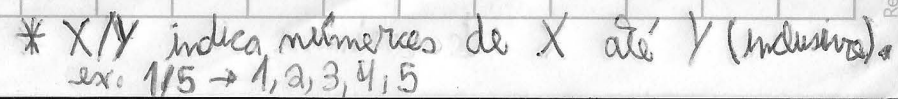 * X/Y indica números de X até Y (inclusive).
ex. 1/5 → 1, 2, 3, 4, 5